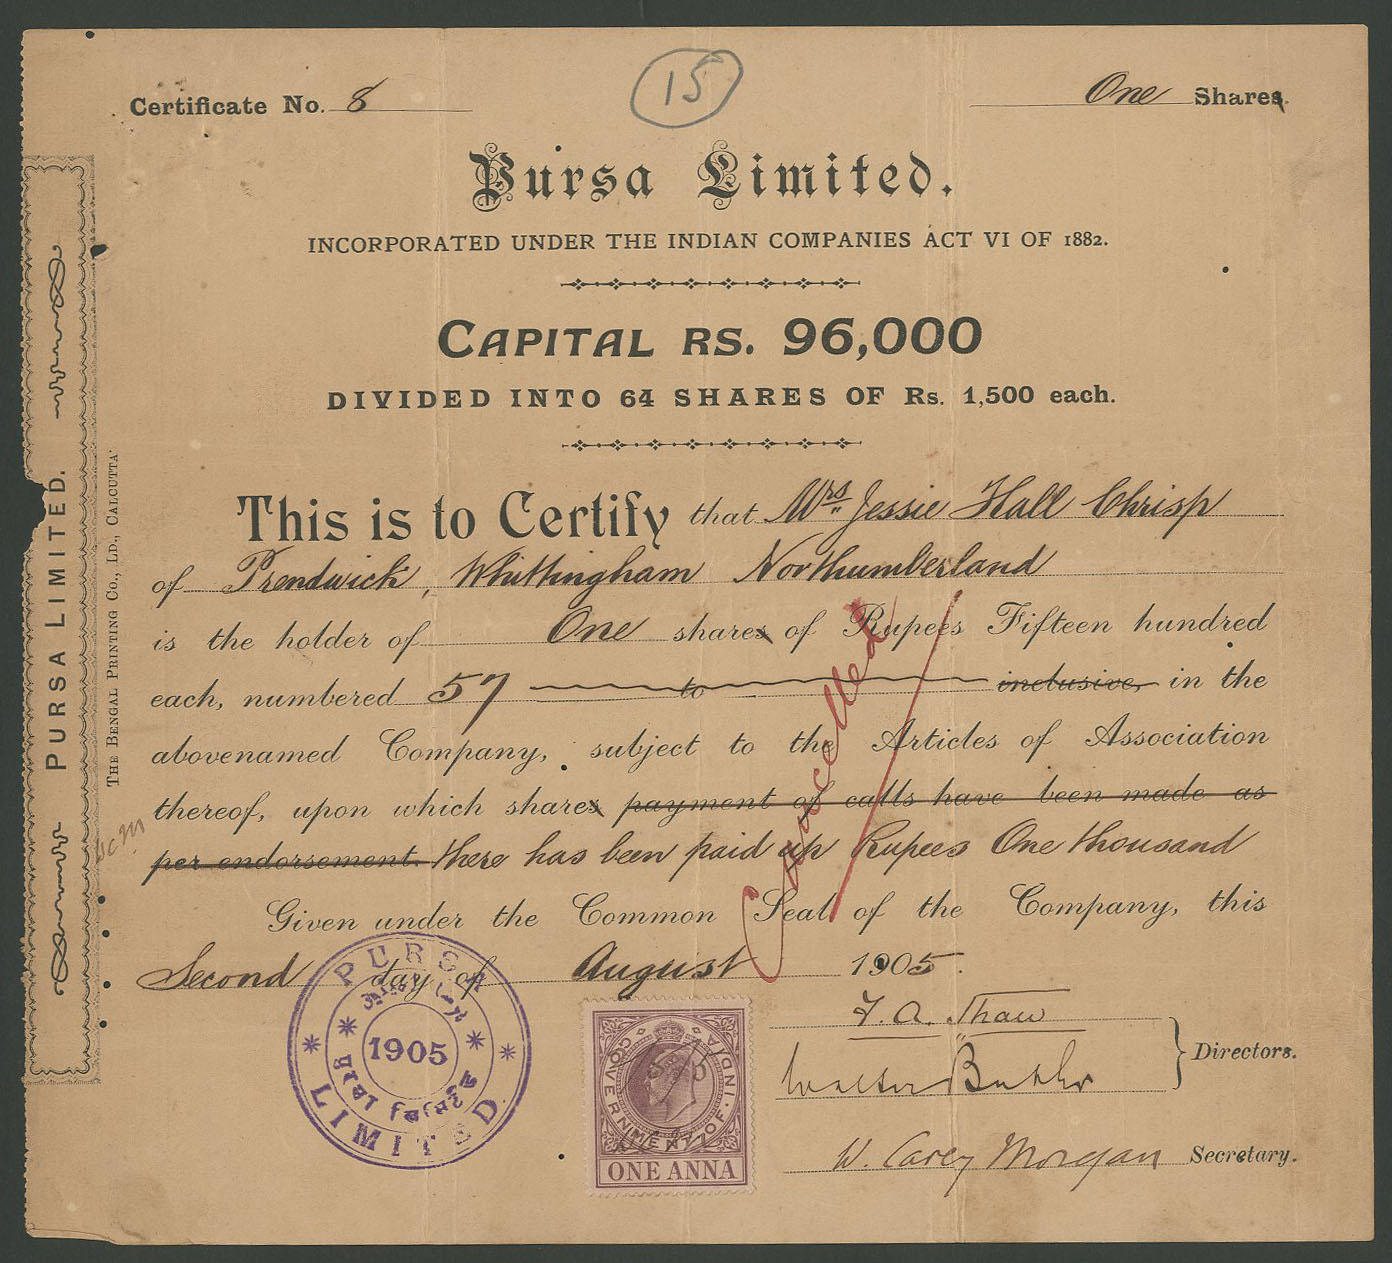 15
Certificate No. 8
One Shares.
Pursa Limited.
INCORPORATED UNDER THE INDIAN COMPANIES ACT VI OF 1882.
CAPITAL RS. 96,000
DIVIDED INTO 64 SHARES OF Rs. 1,500 each.
This is to Certify that Mrs Jessie Hall Chrisp
of Prendwick, Whittingham Northumberland
is the holder of One shares of Rupees Fifteen hundred
each, numbered 57 to inclusive, in the
abovenamed Company, subject to the Articles of Association
thereof, upon which shares payment of calls have been made as
per endorsement. there has been paid up Rupees One thousand
Given under the Common Seal of the Company, this
Second day of August 1905.
Cancelled
PURSA LIMITED
1905
GOVERNMENT OF INDIA
ONE ANNA
Directors.
W. Carey Morgan Secretary.
PURSA LIMITED.
THE BENGAL PRINTING CO., LD., CALCUTTA